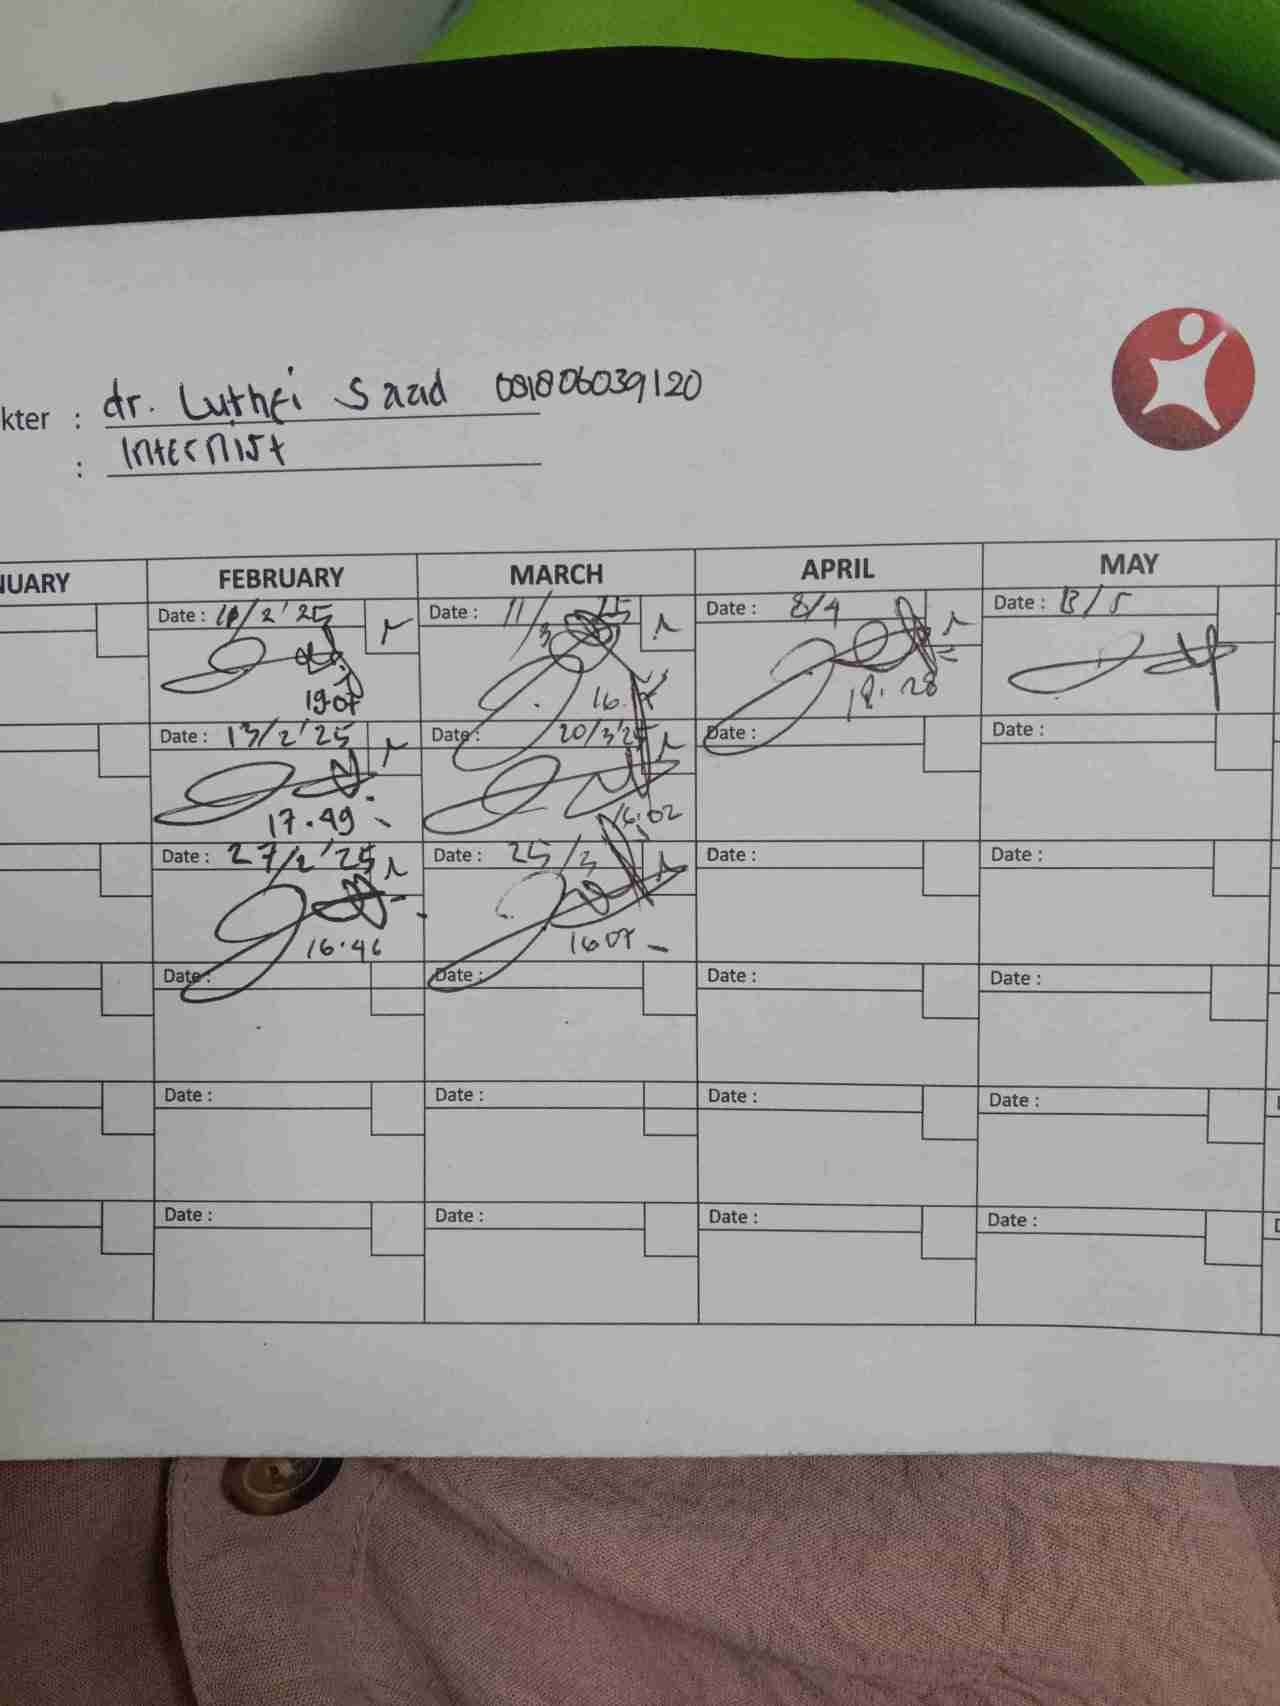 kter : dr. Luthfi Saad 081806039120
: Internist
NUARY FEBRUARY MARCH APRIL MAY
Date : /2'25 Date : 11/3 25 Date : 8/4 Date : 13/5
19.07 16. 18.28
Date : 13/2'25 Date : 20/3'25 Date : Date :
17.49 16.02
Date : 27/2'25 Date : 25/3 Date : Date :
16.46 16.07
Date : Date : Date : Date :
Date : Date : Date : Date :
Date : Date : Date : Date :